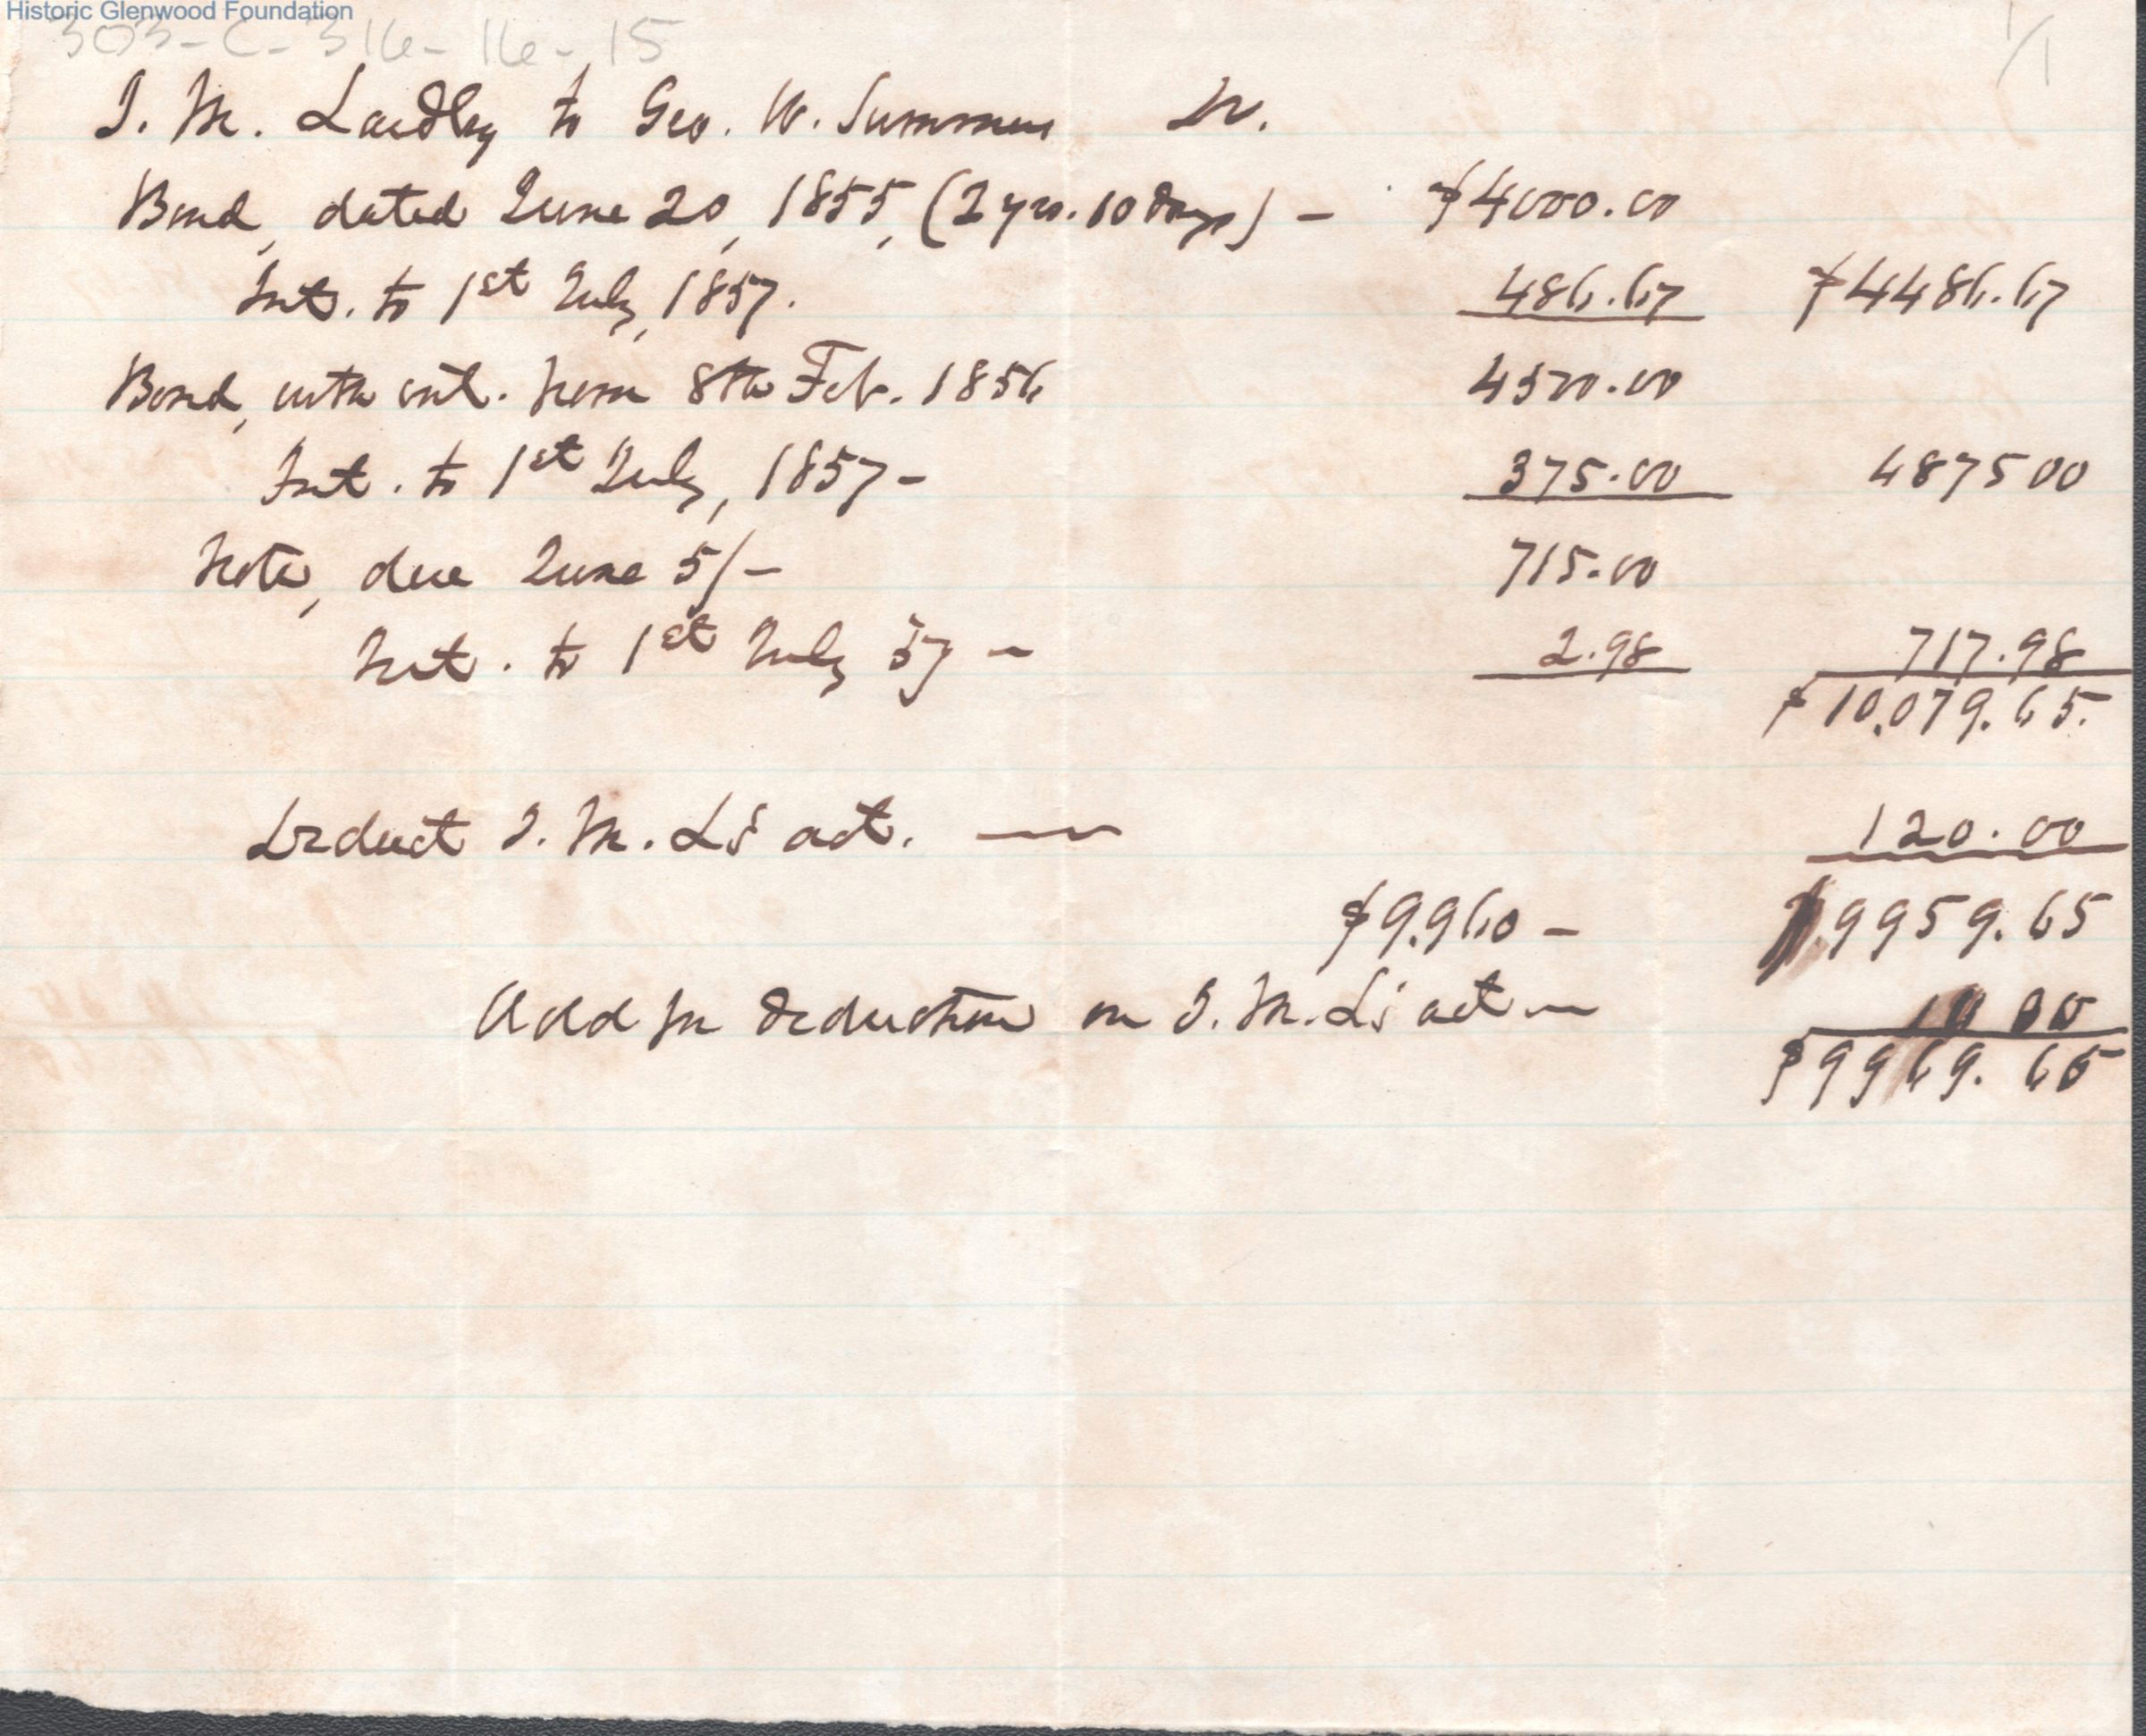 Historic Glenwood Foundation
303-C-316-16-15
1/1
J. M. Laidley to Geo. W. Summers Dr.
Bond, dated June 20, 1855, (2 yrs. 10 days) – $4000.00
Int. to 1st July, 1857. 486.67 $4486.67
Bond, with int. from 8th Feb. 1856 4500.00
Int. to 1st July, 1857– 375.00 4875 00
Note, due June 5/– 715.00
Int. to 1st July 57 – 2.98 717.98
$10,079.65.
Deduct J. M. L's act. — 120.00
$9.960 – $9959.65
Add for deduction on J. M. L's act — 10 00
$9969.65